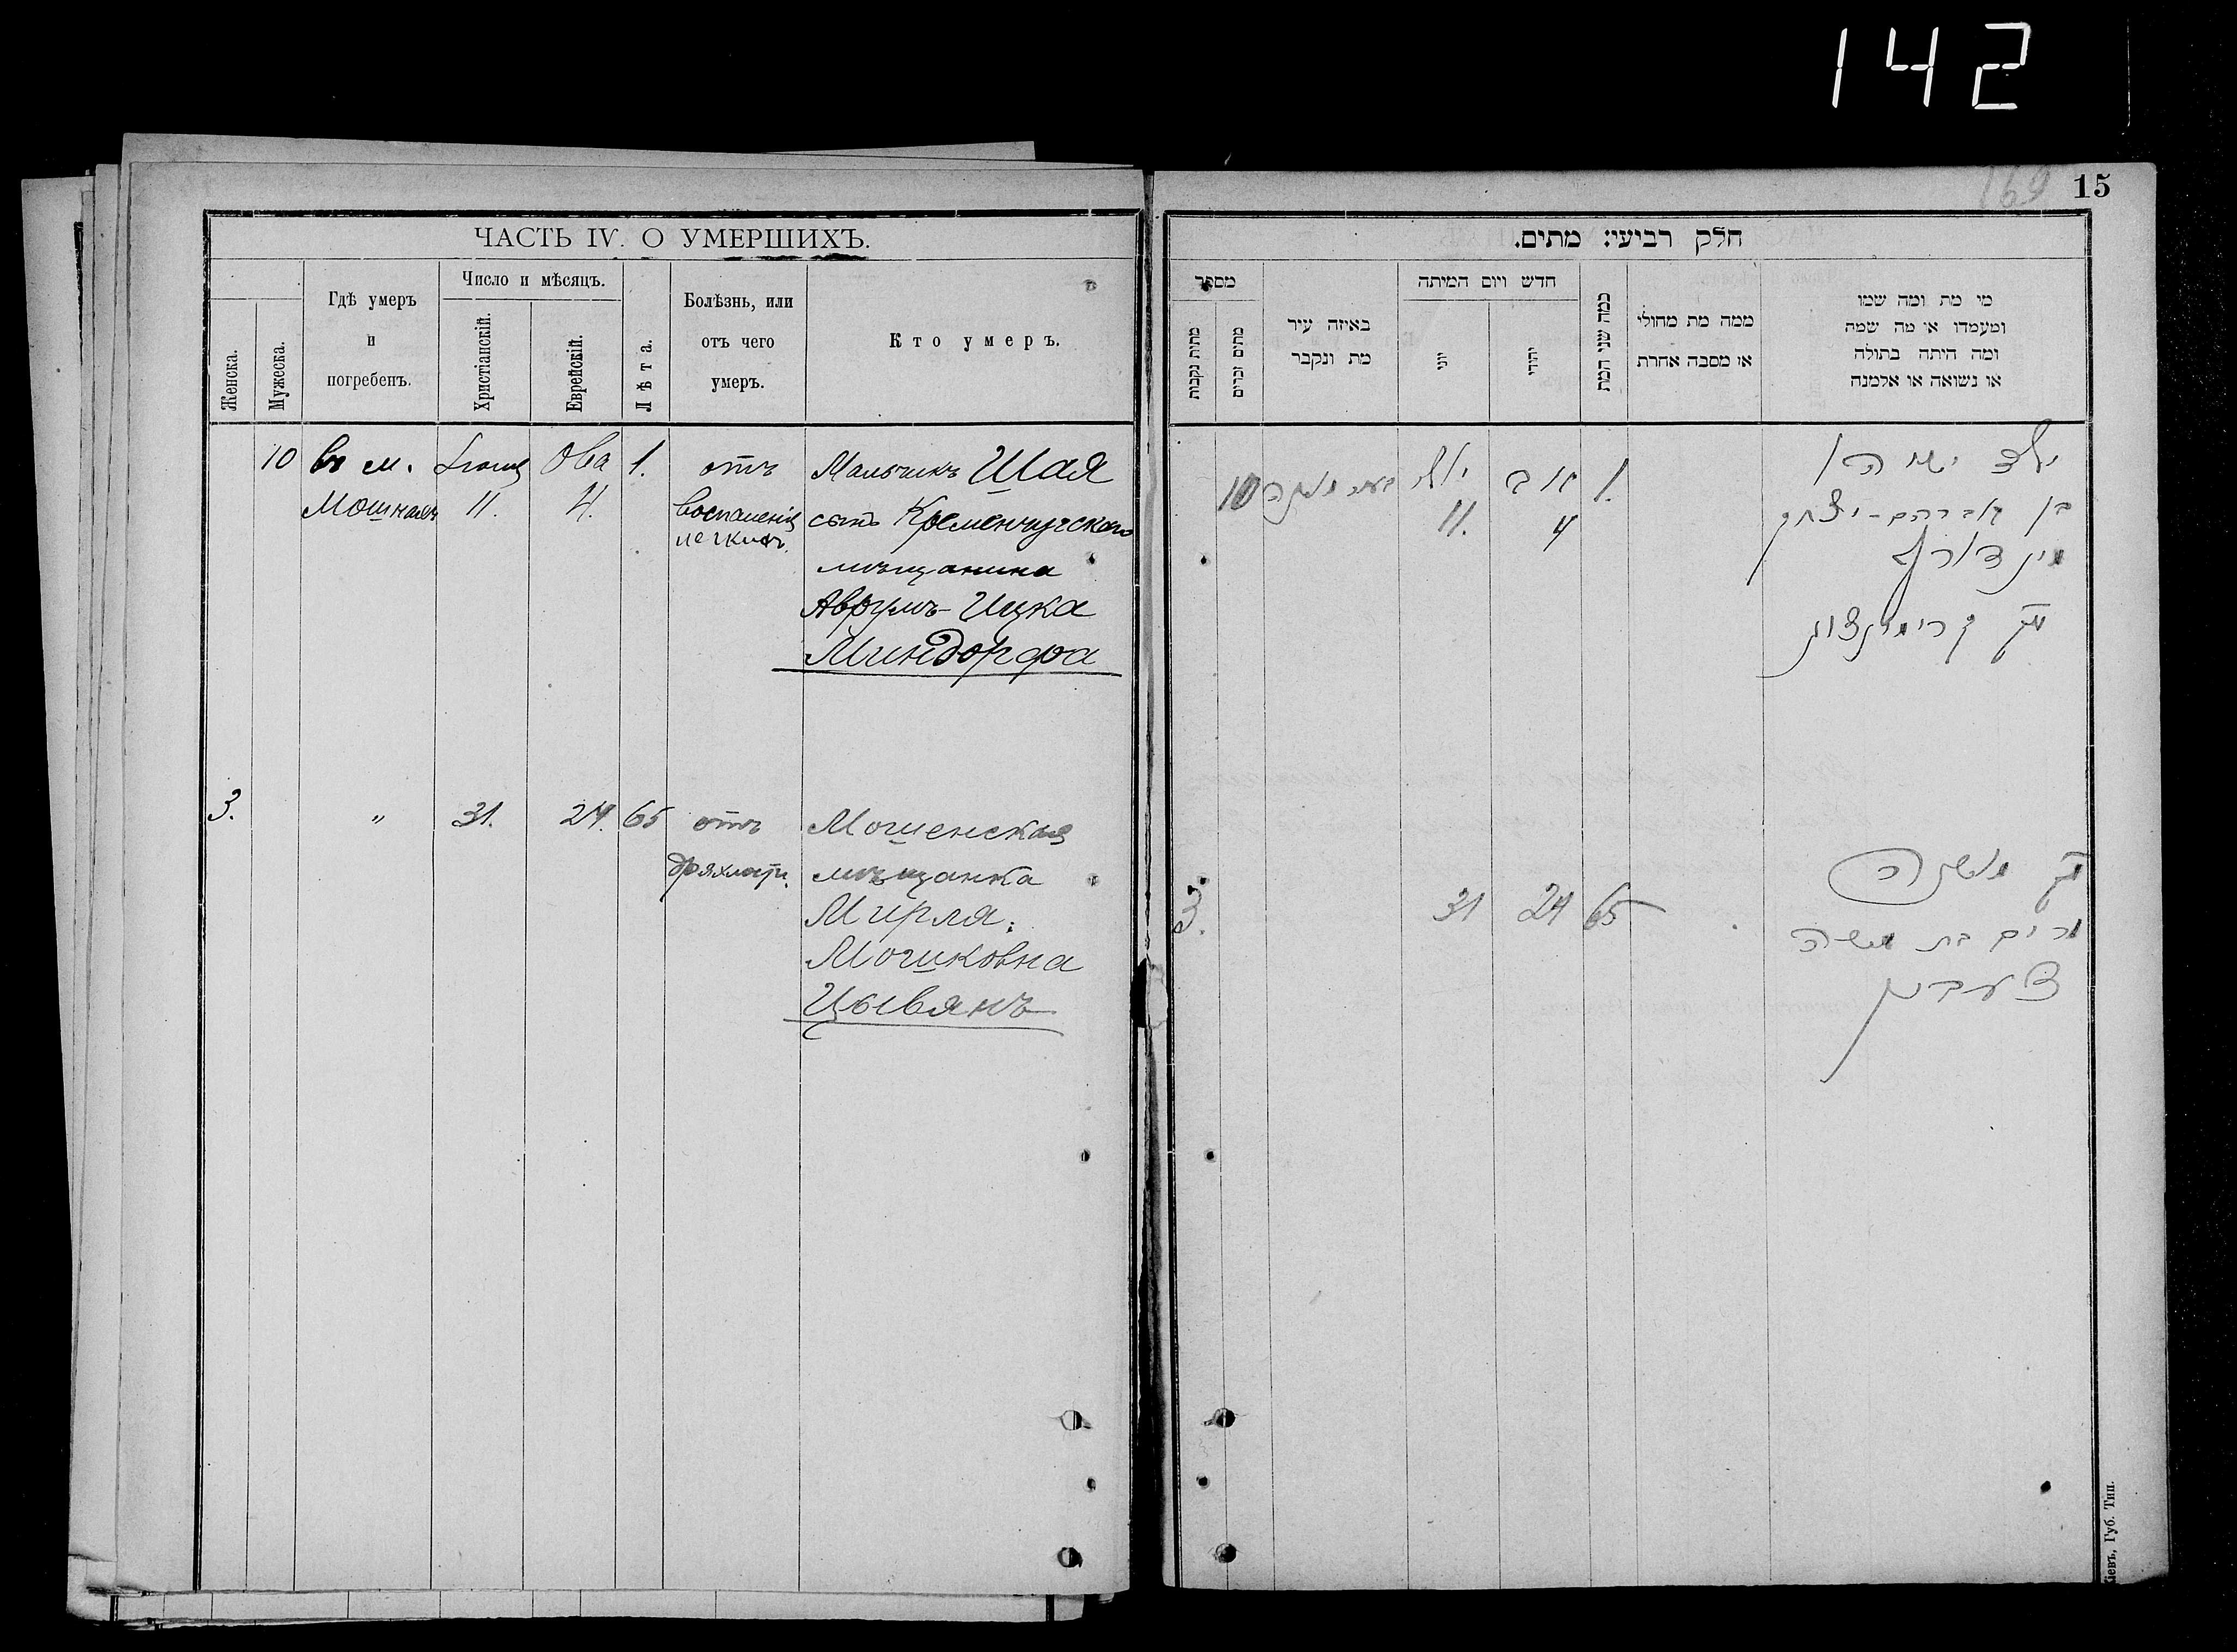 142
169
15
ЧАСТЬ IV. О УМЕРШИХЪ.
Женска.
Мужеска.
Гдѣ умеръ
и
погребенъ.
Число и мѣсяцъ.
Христіанскій.
Еврейскій.
Лѣта.
Болѣзнь, или
отъ чего
умеръ.
Кто умеръ.
10 въ м. Ова 1. отъ Мальчикъ Шая
11. 4. воспаленія сынъ Кременчугскаго
легкихъ.
мѣщанина
Аврумъ-Ицка
Миндорфа
3. " 31. 24. 65 отъ Мошенская
мѣщанка
Мирля
Мошковна
Цывянъ
חלק רביעי: מתים.
מספר
מתות נקבות
מתים זכרים
באיזה עיר
מת ונקבר
חדש ויום המיתה
יוני
יהודי
כמה שני המת
ממה מת מחולי
או מסבה אחרת
מי מת ומה שמו
ומעמדו או מה שמה
ומה היתה בתולה
או נשואה או אלמנה
10 יולי אב 1. ילד ישיה
11. 4 בן אברהם-יצחק
מינדורף
3. 31 24 65
מרים בת משה
Кіевъ, Губ. Тип.